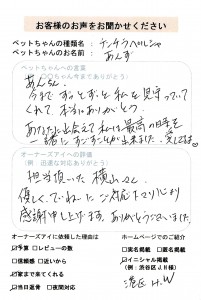 お客様のお声をお聞かせください
ペットちゃんの種類名 : チンチラペルシャ
ペットちゃんのお名前 : あんず
ペットちゃんへの言葉
(ペットちゃん今までありがとう)
あんちゃん。
今までずーとずーと私を見守っていて
くれて、本当にありがとう。
あなたに出会えて私は最高の日々を
一緒にすごすことが出来ました。愛してるよ
オーナーズアイへの評価
(例 迅速な対応ありがとう)
担当頂いた横山さん
優しく、ていねいなご対応を下さり心より
感謝申し上げます。ありがとうございました。
オーナーズアイに依頼した理由は
予算 レビューの数
信頼感 近いから
家まで来てくれる
当日返骨 夜間対応
ホームページでのご紹介
実名掲載 匿名掲載
イニシャル掲載
(例:渋谷区J.H様)
港区 H.W